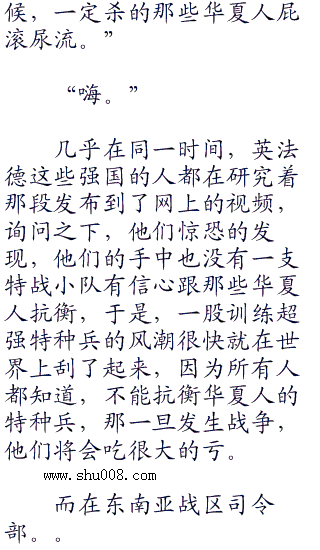 候，一定杀的那些华夏人屁
滚尿流。”
“嗨。”
几乎在同一时间，英法
德这些强国的人都在研究着
那段发布到了网上的视频，
询问之下，他们惊恐的发
现，他们的手中也没有一支
特战小队有信心跟那些华夏
人抗衡，于是，一股训练超
强特种兵的风潮很快就在世
界上刮了起来，因为所有人
都知道，不能抗衡华夏人的
特种兵，那一旦发生战争，
他们将会吃很大的亏。
www.shu008.com
而在东南亚战区司令
部。。